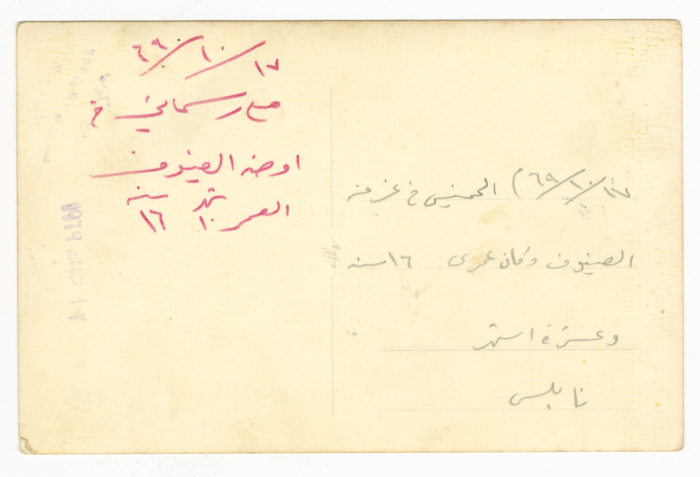 ٦٩/١٠/١٧
مع رسماتي في
اوضه الضيوف
العمر ١٦ سنه
١٠ شهر
(٦٩/١٠/١٧) الخميس في غرفة
الضيوف وكان عمري ١٦ سنه
وعشرة اشهر
نابلس